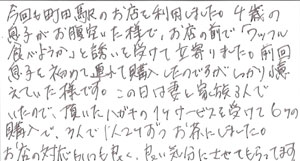 今回も町田駅のお店を利用しました。4歳の
息子がお腹空いた様で、お店の前で「ワッフル
食べようか」と誘いを受けて立寄りました。前回
息子を初めて連れて購入したのですがしっかり憶
えていた様です。この日は妻と家族3人で
いたので、頂いたハガキの1ケサービスを受けて6ケの
購入で、3人で1人2ケずつお茶にしました。
お店の対応もいつも良く、良い気分にさせてもらってます